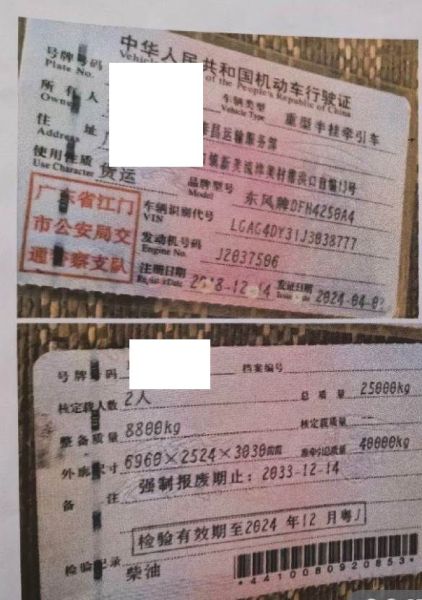 中华人民共和国机动车行驶证
Vehicle of the People's Republic of China
号牌号码
Plate No.
车辆类型 重型半挂牵引车
Vehicle Type
所有人 昌运输服务部
Owner
住址
Address
镇新美 村 自编13号
使用性质 货运
Use Character
品牌型号 东风牌DFH4250A4
Model
广东省江门
市公安局交
通警察支队
车辆识别代号 LGAG4DY31J3038777
VIN
发动机号码 J2037506
Engine No.
注册日期 2018-12-14 发证日期 2024-04-02
号牌号码 档案编号
核定载人数 2人 总质量 25000kg
整备质量 8800kg 核定载质量 --
外廓尺寸 6960×2524×3030 准牵引总质量 40000kg
备注 强制报废期止：2033-12-14
检验有效期至2024 年12 月粤J
检验记录 柴油
*4410080920853*